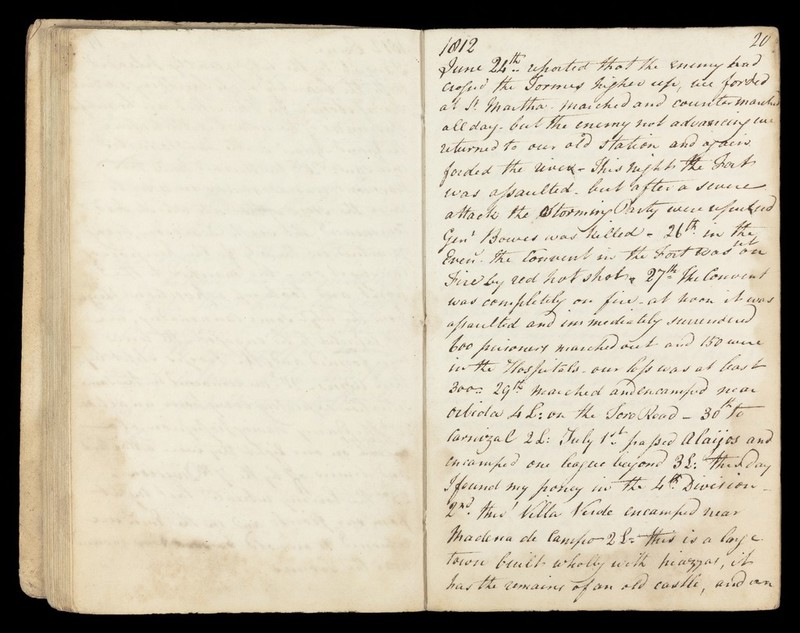 1812 20
June 24th. reported that the enemy had
crossed the Tormes higher up, we forded
at St. Martha. marched and counter marched
all day. but the enemy not advancing we
returned to our old station and again
forded the river - This night the Fort
was assaulted. but after a severe
attack the Storming Party were repulsed
Genl Bowes was killed - 26th in the
Eveng. the Convent in the Fort was set on
Fire by red hot shot. 27th the Convent
was completely on fire - at noon it was
assaulted and immediately surrendered
600 prisoners marched out and 150 were
in the Hospitals. our loss was at least
300. 29th marched and encamped near
Orbiola 4 L: on the Toro Road - 30th to
Carnizal 2 L: July 1st. passed Alaijos and
encamped one league beyond 3 L: this day
I found my poney in the 4th Division -
2nd. thro' Villa Verde encamped near
Madena de Campo - 2 L. this is a large
town built wholly with piazzas, it
has the remains of an old castle, and an